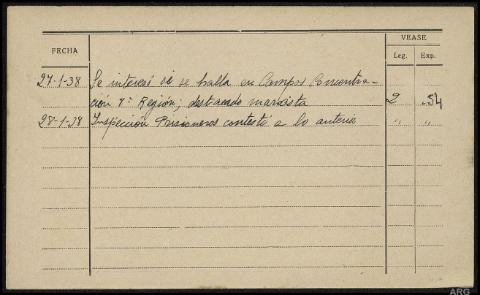 FECHA
VEASE
Leg. Exp.
27-1-38 Se interesó si se halla en Campos Concentra-
ción 7ª Región, destacado marxista 2 54
28-1-38 Inspección Prisioneros contestó a lo anterior " "
ARG